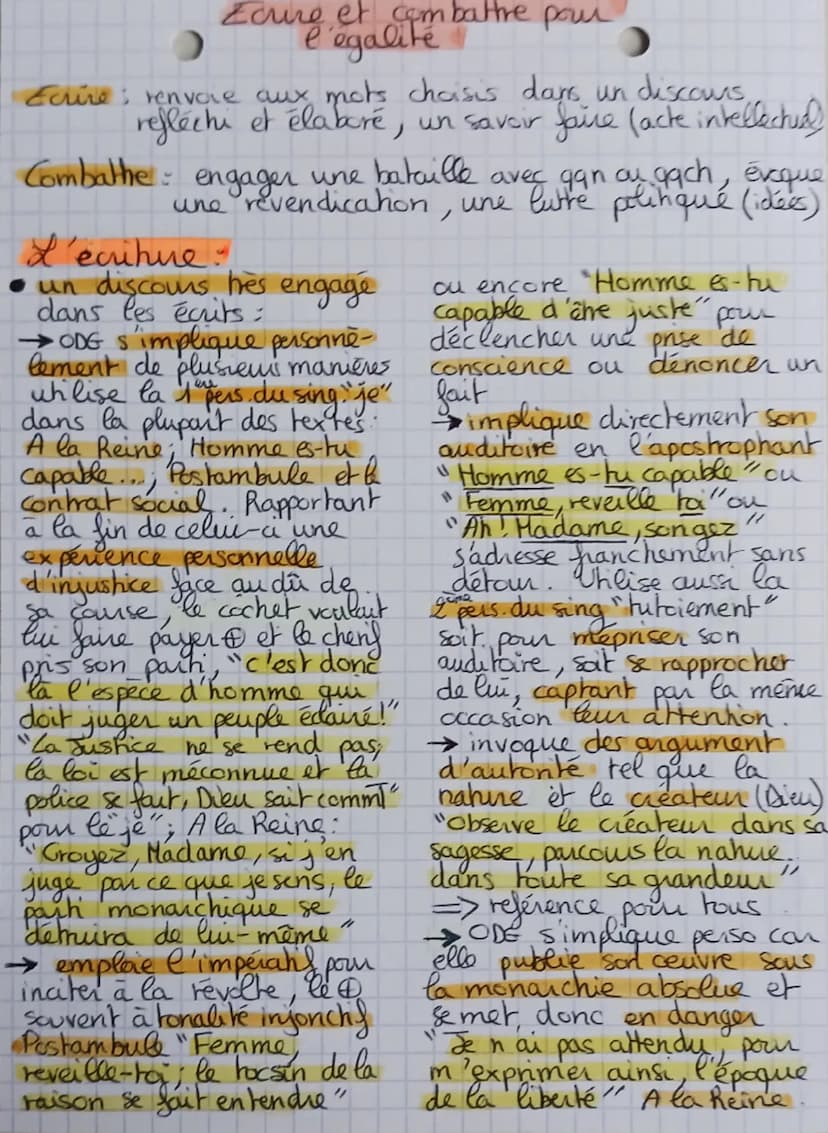 Ecrire et combattre pour
l'égalité
Ecrire : renvoie aux mots choisis dans un discours
réfléchi et élaboré, un savoir faire (acte intellectuel)
Combattre : engager une bataille avec qqn ou qqch, évoque
une revendication, une lutte politique (idées)
L'écriture :
• un discours très engagé
dans les écrits :
→ ODG s'implique personnè-
lement de plusieurs manières
utilise la 1ère pers. du sing "je"
dans la plupart des textes :
A la Reine ; Homme es-tu
capable... ; Postambule et le
contrat social. Rapportant
à la fin de celui-ci une
expérience personnelle
d'injustice face au dû de
sa course, le cocher voulait
lui faire payer ⊕ et le chenf
pris son parti, "c'est donc
là l'espèce d'homme qui
doit juger un peuple éclairé !"
"La Justice ne se rend pas,
la loi est méconnue et la
police se fait, Dieu sait commT"
pour le "je" ; A la Reine :
"Croyez, Madame, si j'en
juge par ce que je sens, le
parti monarchique se
détruira de lui-même"
→ emploie l'impératif pour
inciter à la révolte, le ⊕
souvent à tonalité injonctif
Postambule "Femme,
reveille-toi ; le tocsin de la
raison se fait entendre"
ou encore "Homme es-tu
capable d'être juste" pour
déclencher une prise de
conscience ou dénoncer un
fait
→ implique directement son
auditoire en l'apostrophant
"Homme es-tu capable" ou
"Femme, reveille toi" ou
"Ah ! Madame, songez"
s'adresse franchement sans
détour. Utilise aussi la
2ème pers. du sing "tutoiement"
soit pour mépriser son
auditoire, soit se rapprocher
de lui, captant par la même
occasion leur attention.
→ invoque des argument
d'autorité tel que la
nature et le créateur (Dieu)
"Observe le créateur dans sa
sagesse, parcours la nature
dans toute sa grandeur"
=> reférence pour tous
→ ODG s'implique perso car
elle publie son œuvre sous
la monarchie absolue et
se met, donc en danger
"Je n'ai pas attendu, pour
m'exprimer ainsi, l'époque
de la liberté" A la Reine.